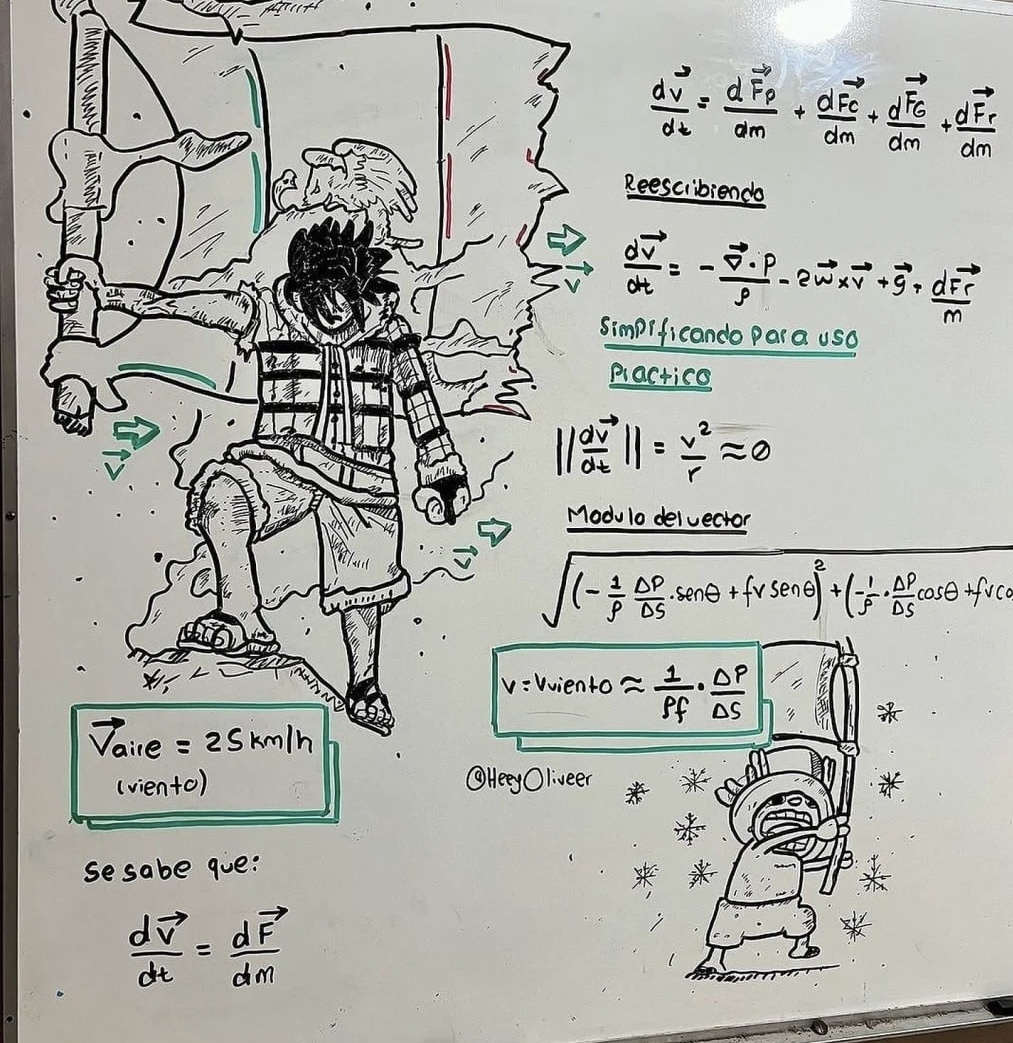 dv⃗/dt = dF⃗p/dm + dF⃗c/dm + dF⃗G/dm + dF⃗r/dm
Reescribiendo
dv⃗/dt = - ∇⃗·P/ρ - 2w⃗xv⃗ + g⃗ + dF⃗r/m
Simplificando para uso
Practico
||dv⃗/dt|| = v²/r ≈ 0
Modulo del vector
√(-1/ρ ΔP/ΔS · senθ + fv senθ)² + (-1/ρ · ΔP/ΔS cosθ + fvco
v = vviento ≈ 1/ρf · ΔP/ΔS
@HeeyOliveer
v⃗
v⃗
v⃗
V⃗aire = 25 km/h
(viento)
se sabe que:
dv⃗/dt = dF⃗/dm